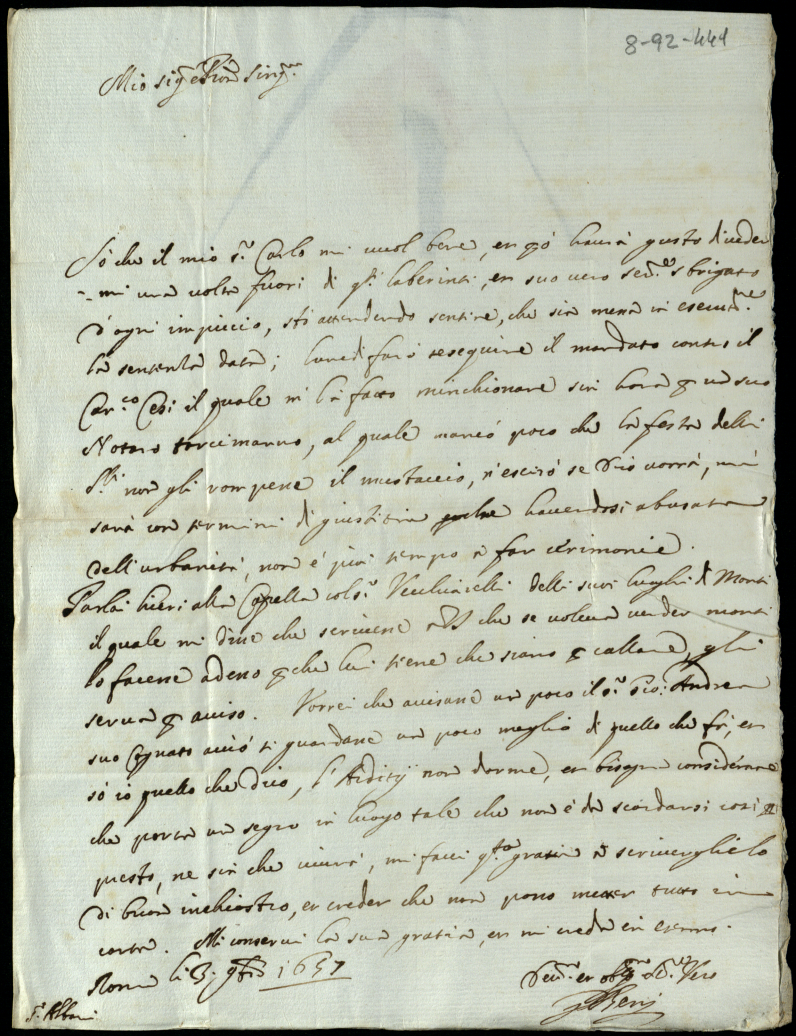 8-92-441
Mio sig.re e Pron Sing.mo
Sò che il mio s.r Carlo mi vuol bene, et però havrà gusto di veder
mi una volta fuori di q.ti laberinti, et suo vero ser.re sbrigato
d'ogni impiccio, stò attendendo sentire, che sia messa in esecut.ne
la sentenza data; lunedi farò reseguire il mandato contro il
Car.co Cesi il quale mi hà fatto minchionare sin hora p un suo
Notaro torcimanno, al quale mancò poco che la festa delli
S.ti non gli rompesse il mustaccio, n'escirò se Dio vorrà, mà
sarà con termini di giustitia havendosi abusata
dell'urbanità, non è più tempo à far cirimonie.
Parlai hieri alla Capella col s.r Vecchiarelli delli suoi luoghi di Monti
il quale mi disse che scrivesse à VS che se voleva vender monti
lo facesse adesso p che lui tiene che siano p callare, gli
serva p aviso. Vorrei che avisasse un poco il s.r Gio: Andrea
suo Cognato acciò si guardasse un poco meglio di quello che fà, et
sò io quello che dico, l' non dorme, et bisogna considerare
che porta un segno in luogo tale che non è da scordarsi così
presto, ne sin che viverà, mi facci q.ta gratia à scriverglielo
di buon inchiostro, et creder che non posso metter tutto in
carta. Mi conservi la sua gratia, et mi creda in eterno.
Roma li 3. 9bre 1657
Dev.mo et obb.mo se.re Vero
S.r Albani